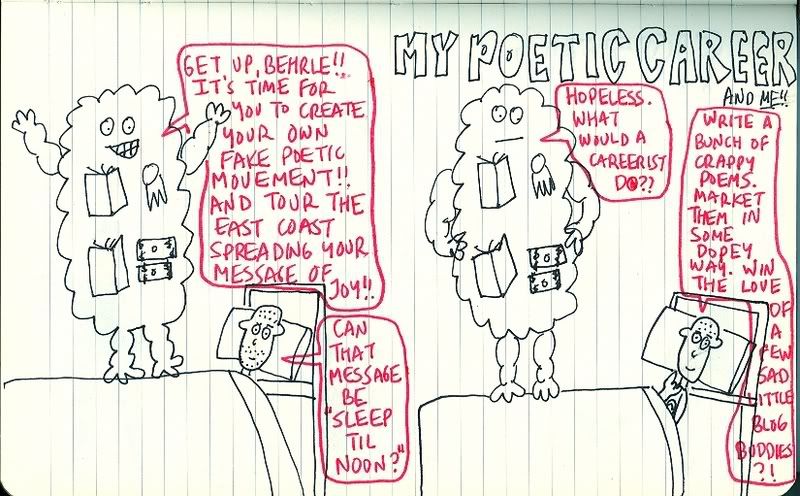 MY POETIC CAREER
AND ME!!
GET UP, BEHRLE!!
IT'S TIME FOR
YOU TO CREATE
YOUR OWN
FAKE POETIC
MOVEMENT!!
AND TOUR THE
EAST COAST
SPREADING YOUR
MESSAGE OF
JOY!!
CAN
THAT
MESSAGE
BE
"SLEEP
TIL
NOON?"
HOPELESS.
WHAT
WOULD A
CAREERIST
DO??
WRITE A
BUNCH OF
CRAPPY
POEMS.
MARKET
THEM IN
SOME
DOPEY
WAY. WIN
THE LOVE
OF
A
FEW
SAD
LITTLE
BLOG
BUDDIES
?!